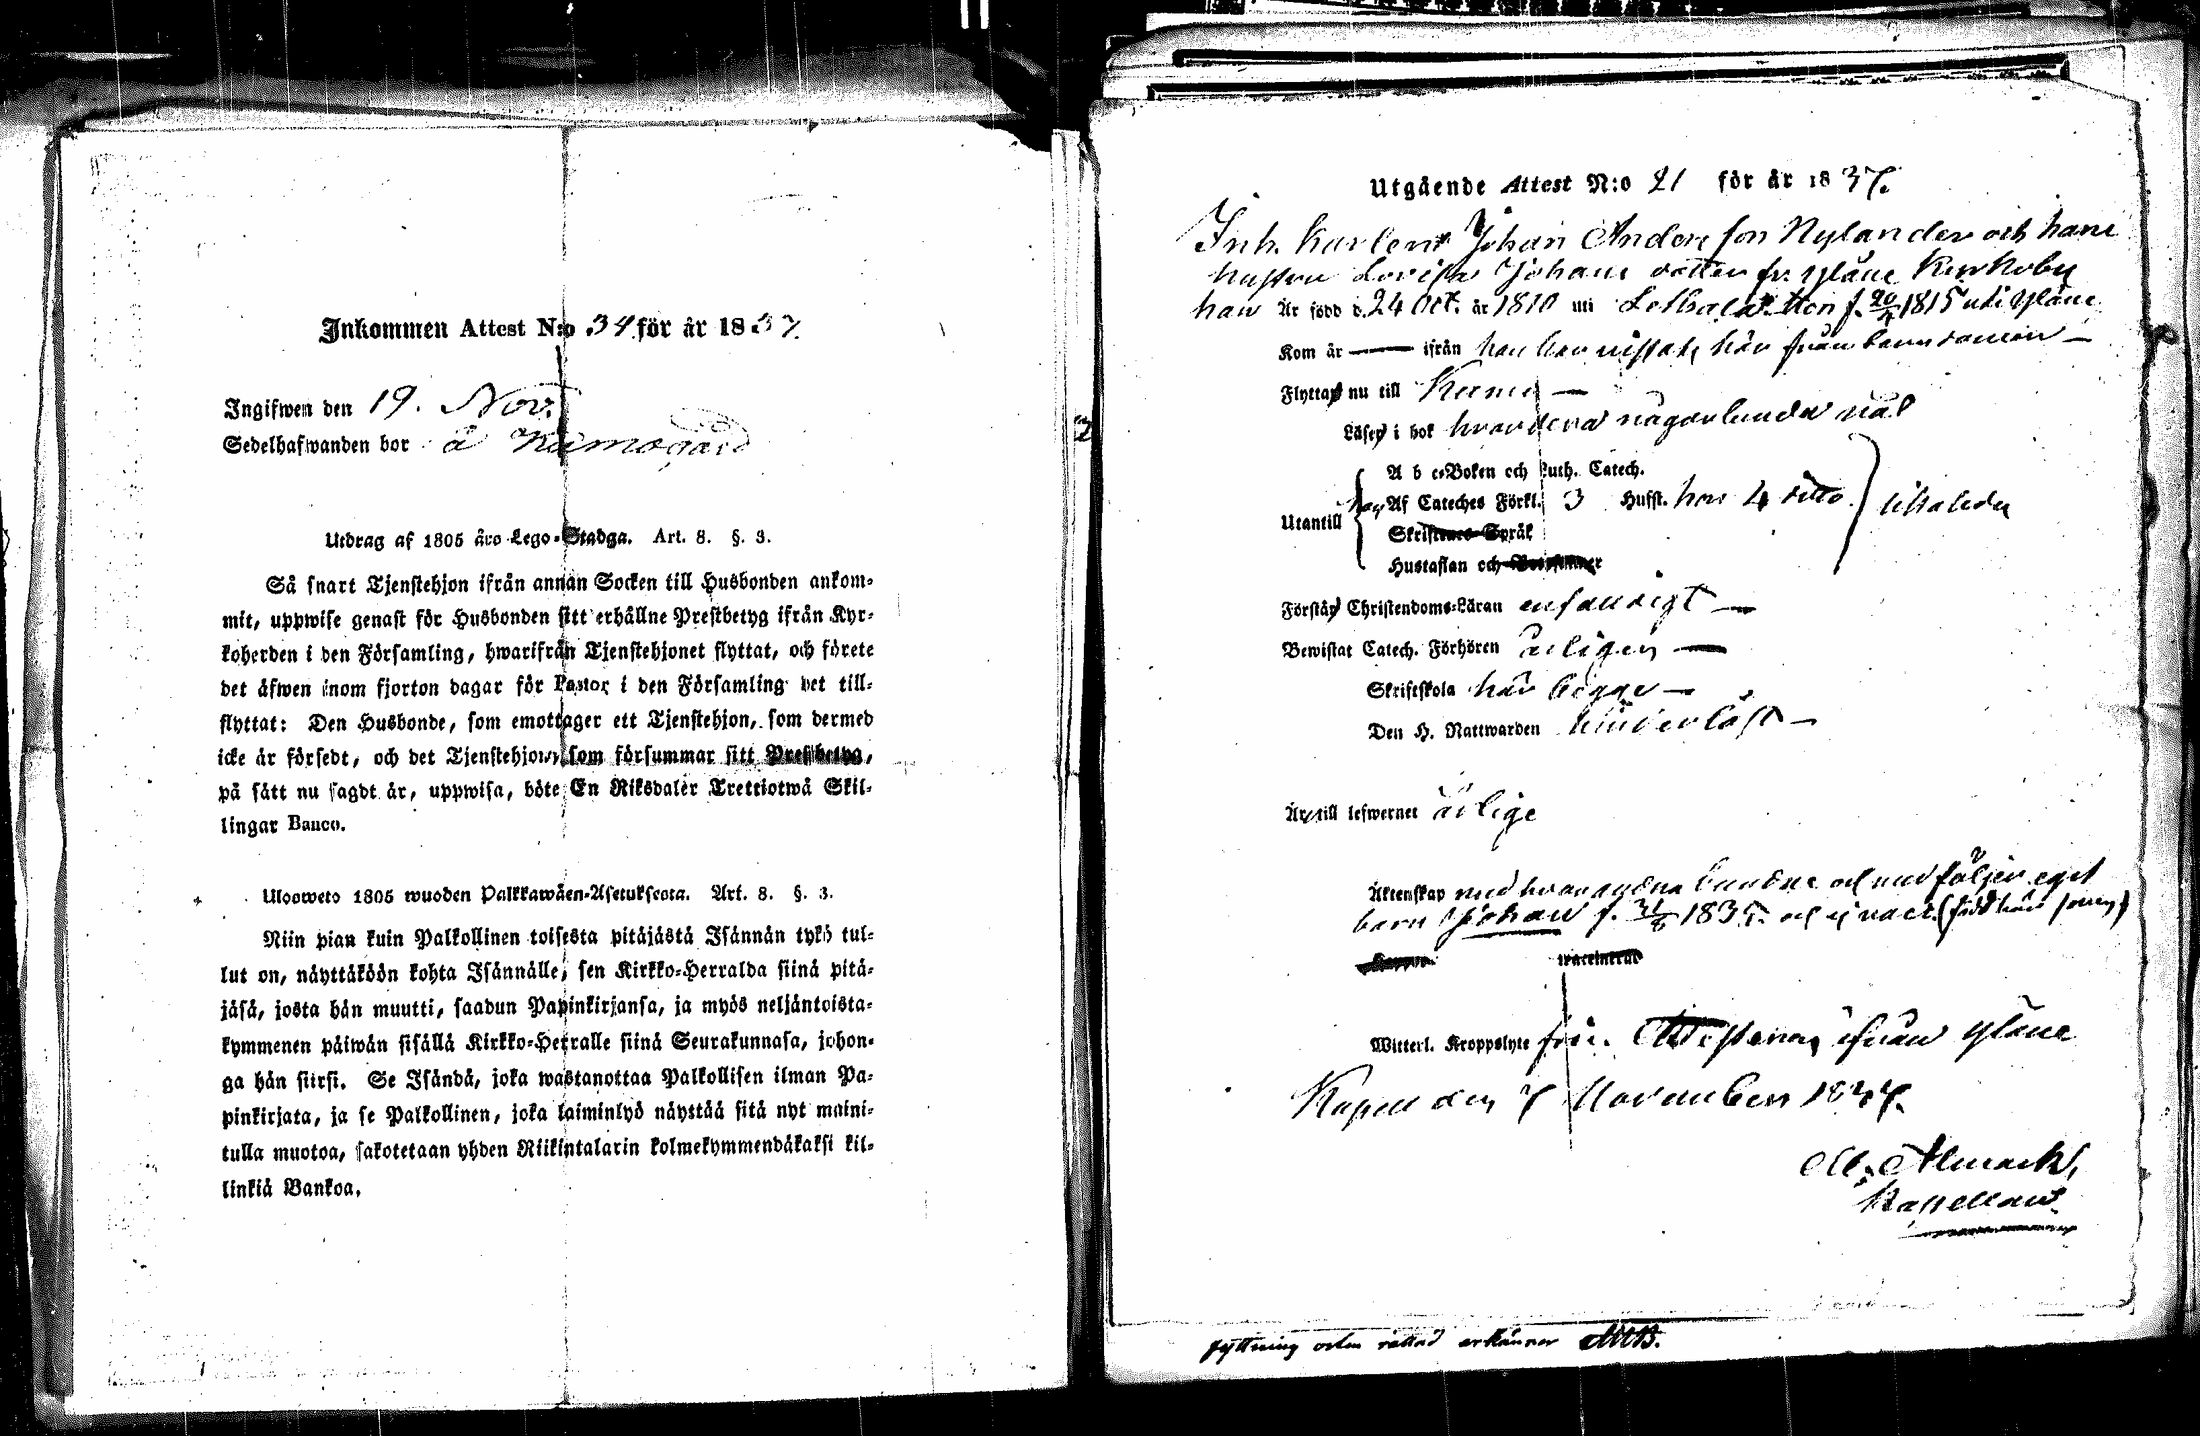 Inkommen Attest N:o 34 för år 1837.
Ingifwen den 19. Nov.
Sedelhafwanden bor å Kumogård
Utdrag af 1805 års Lego-Stadga. Art. 8. §. 3.
Så snart Tjenstehjon ifrån annan Socken till Husbonden ankom-
mit, uppwise genast för Husbonden sitt erhållne Prestbetyg ifrån Kyr-
koherden i den Församling, hwarifrån Tjenstehjonet flyttat, och förete
det äfwen inom fjorton dagar för Pastor i den Församling det till-
flyttat: Den Husbonde, som emottager ett Tjenstehjon, som dermed
icke är försedt, och det Tjenstehjon, som försummar sitt Prestbetyg,
på sätt nu sagdt är, uppwisa, böte En Riksdaler Trettiotwå Skil-
lingar Banco.
Ulosweto 1805 wuoden Palkkawäen-Asetuksesta. Art. 8. §. 3.
Niin pian kuin Palkollinen toisesta pitäjästä Isännän tykö tul-
lut on, näyttäköön kohta Isännälle, sen Kirkko-Herralda siinä pitä-
jäsä, josta hän muutti, saadun Papinkirjansa, ja myös neljäntoista-
kymmenen päiwän sisällä Kirkko-Herralle siinä Seurakunnasa, johon-
ga hän siirsi. Se Isändä, joka wastanottaa Palkollisen ilman Pa-
pinkirjata, ja se Palkollinen, joka laiminlyö näystää sitä nyt maini-
tulla muotoa, sakotetaan yhden Riikintalarin kolmekymmendäkaksi kil-
linkiä Bankoa.
Utgående Attest N:o 21 för år 1837.
Inh. Karlen Johan Andersson Nylander och hans
hustru Lovisa Johans dotter fr. Yläne Kyrkoby
han Är född d. 24 Oct. år 1810 uti f. 20/4 1815 uti Yläne
Kom år — ifrån han har vistats här från barndomen —
Flyttar nu till Kumo —
Läser i bok hvardera någorlunda väl
Utantill
A b c-Boken och Luth. Catech.
Af Cateches Förkl. 3 Hufst. hon 4 ditto likaledes
Skriftenes Språk
Hustaflan och
Förstår Christendoms-Läran enfaldigt —
Bewistat Catech. Förhören årligen —
Skriftskola här begge —
Den H. Nattwarden —
Är till lefwernet ärlige
Äktenskap med hvarandra bundne och medföljer eget
barn Johan f. 31/8 1835. och ej vacc. (född här socken)
vaccinerad
Witterl. Kroppslyte fri. Attesteras ifrån Yläne
Kapell den 7 November 1837.
Kapellan.
flyttning orten rättad erkänner